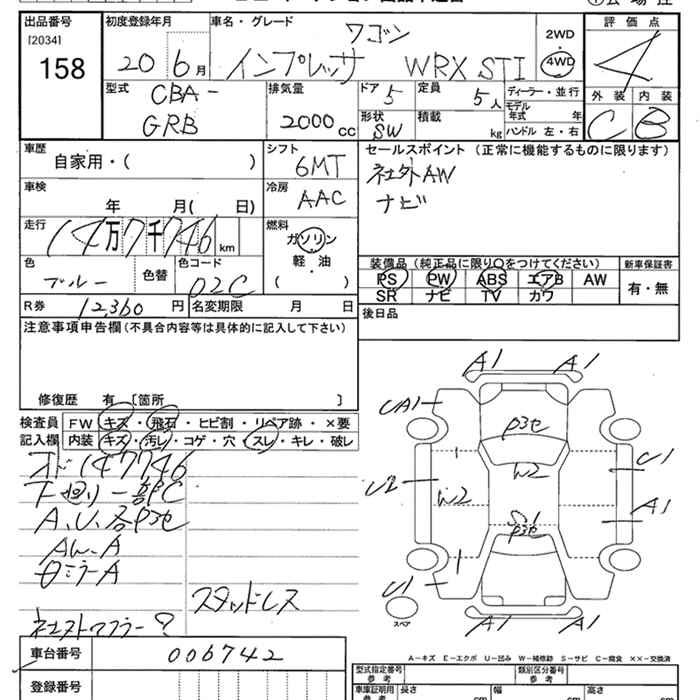 出品番号 初度登録年月 車名・グレード 評価点
[2034] 158
20 6月
ワゴン
インプレッサ WRX STI
2WD
4WD
4
型式 CBA-
GRB
排気量 2000cc
ドア 5
定員 5人
ディーラー・並行
モデル年式 年
形状 SW
積載 kg
ハンドル 左・右
外装 C
内装 B
車歴 自家用・( )
シフト 6MT
セールスポイント(正常に機能するものに限ります)
社外AW
ナビ
車検 年 月( 日)
冷房 AAC
走行 14万7千746km
燃料 ガソリン
軽・油
( )
色 ブルー 色替
色コード 02C
装備品(純正品に限り○をつけてください) 新車保証書
PS PW ABS エアB AW
SR ナビ TV カワ
有・無
R券 12,360円
名変期限 月 日
後日品
注意事項申告欄(不具合内容等は具体的に記入して下さい)
修復歴 有[箇所 ]
検査員 FW キズ・飛石・ヒビ割・リペア跡・×要
記入欄 内装 キズ・汚レ・コゲ・穴・スレ・キレ・破レ
オド147746
下廻り一部C
A、U、各P3セ
AW-A
スタッドレス
社外マフラー?
A1 A1
UA1
P3セ
W2
U2
W2
U1
A1
P3セ
U1
A1 A1
スペア
A-キズ E-エクボ U-凹み W-補修跡 S-サビ C-腐食 ××-交換済
車台番号 006742
登録番号
型式指定番号 参考
類別区分番号 参考
車庫証明用 参考
長さ cm
幅 cm
高さ cm